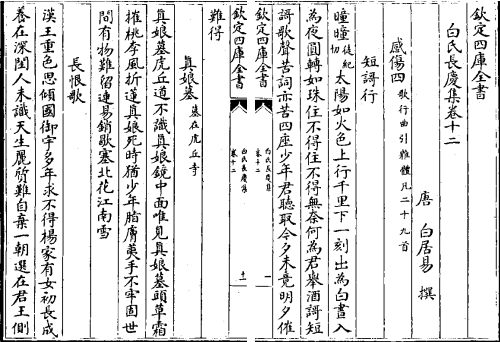 欽定四庫全書
白氏長慶集卷十二
唐 白居易 撰
感傷四 歌行曲引雜體凡二十九首
短謌行
曈曈徒紅切太陽如火色上行千里下一刻出為白晝入
為夜圓轉如珠住不得住不得無柰何為君舉酒謌短
謌歌聲苦詞亦苦四座少年君聽取今夕未竟明夕催
欽定四庫全書
白氏長慶集
卷十二
一
欽定四庫全書
白氏長慶集
卷十二
十一
難得
真娘墓 墓在虎丘寺
真娘墓虎丘道不識真娘鏡中面唯見真娘墓頭草霜
摧桃李風折蓮真娘死時猶少年脂膚荑手不牢固世
間有物難留連易銷歇塞北花江南雪
長恨歌
漢王重色思傾國御宇多年求不得楊家有女初長成
養在深閨人未識天生麗質難自棄一朝選在君王側